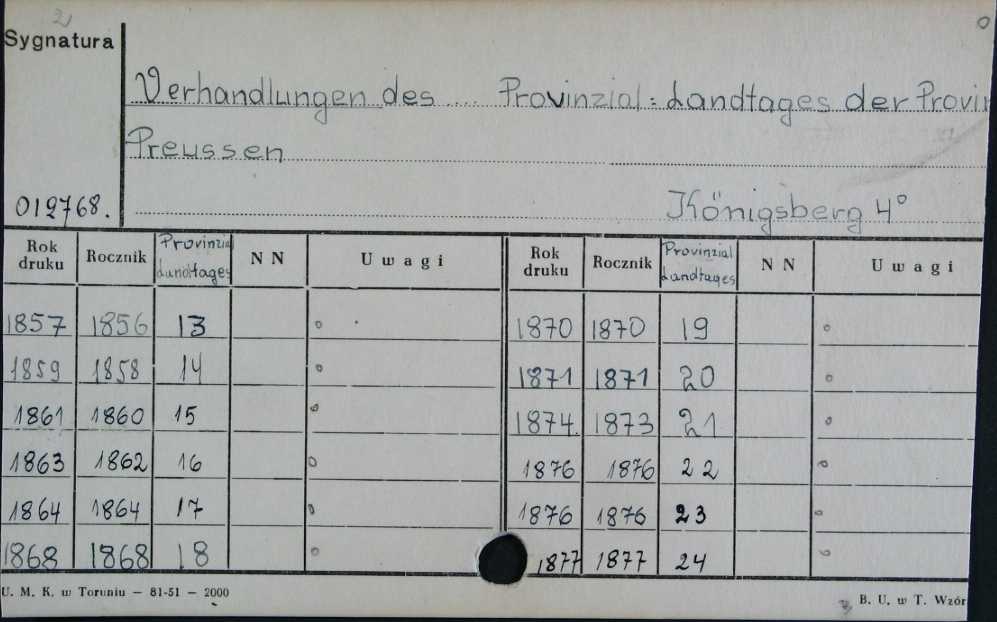 2
Sygnatura
Verhandlungen des .... Provinzial=Landtages der Provin
Preussen
012768.
Königsberg 4°
Rok druku Rocznik Provinzial Landtages N N Uwagi Rok druku Rocznik Provinzial Landtages N N Uwagi
1857 1856 13 o 1870 1870 19 o
1859 1858 14 o 1871 1871 20 o
1861 1860 15 o 1874. 1873 21 o
1863 1862 16 o 1876 1876 22 o
1864 1864 17 o 1876 1876 23 o
1868 1868 18 o 1877 1877 24 o
U. M. K. w Toruniu — 81-51 — 2000
B. U. w T. Wzór